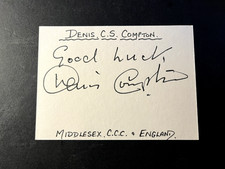 DENIS. C.S. COMPTON.
Good luck,
Denis Compton
MIDDLESEX. C.C.C. & ENGLAND.